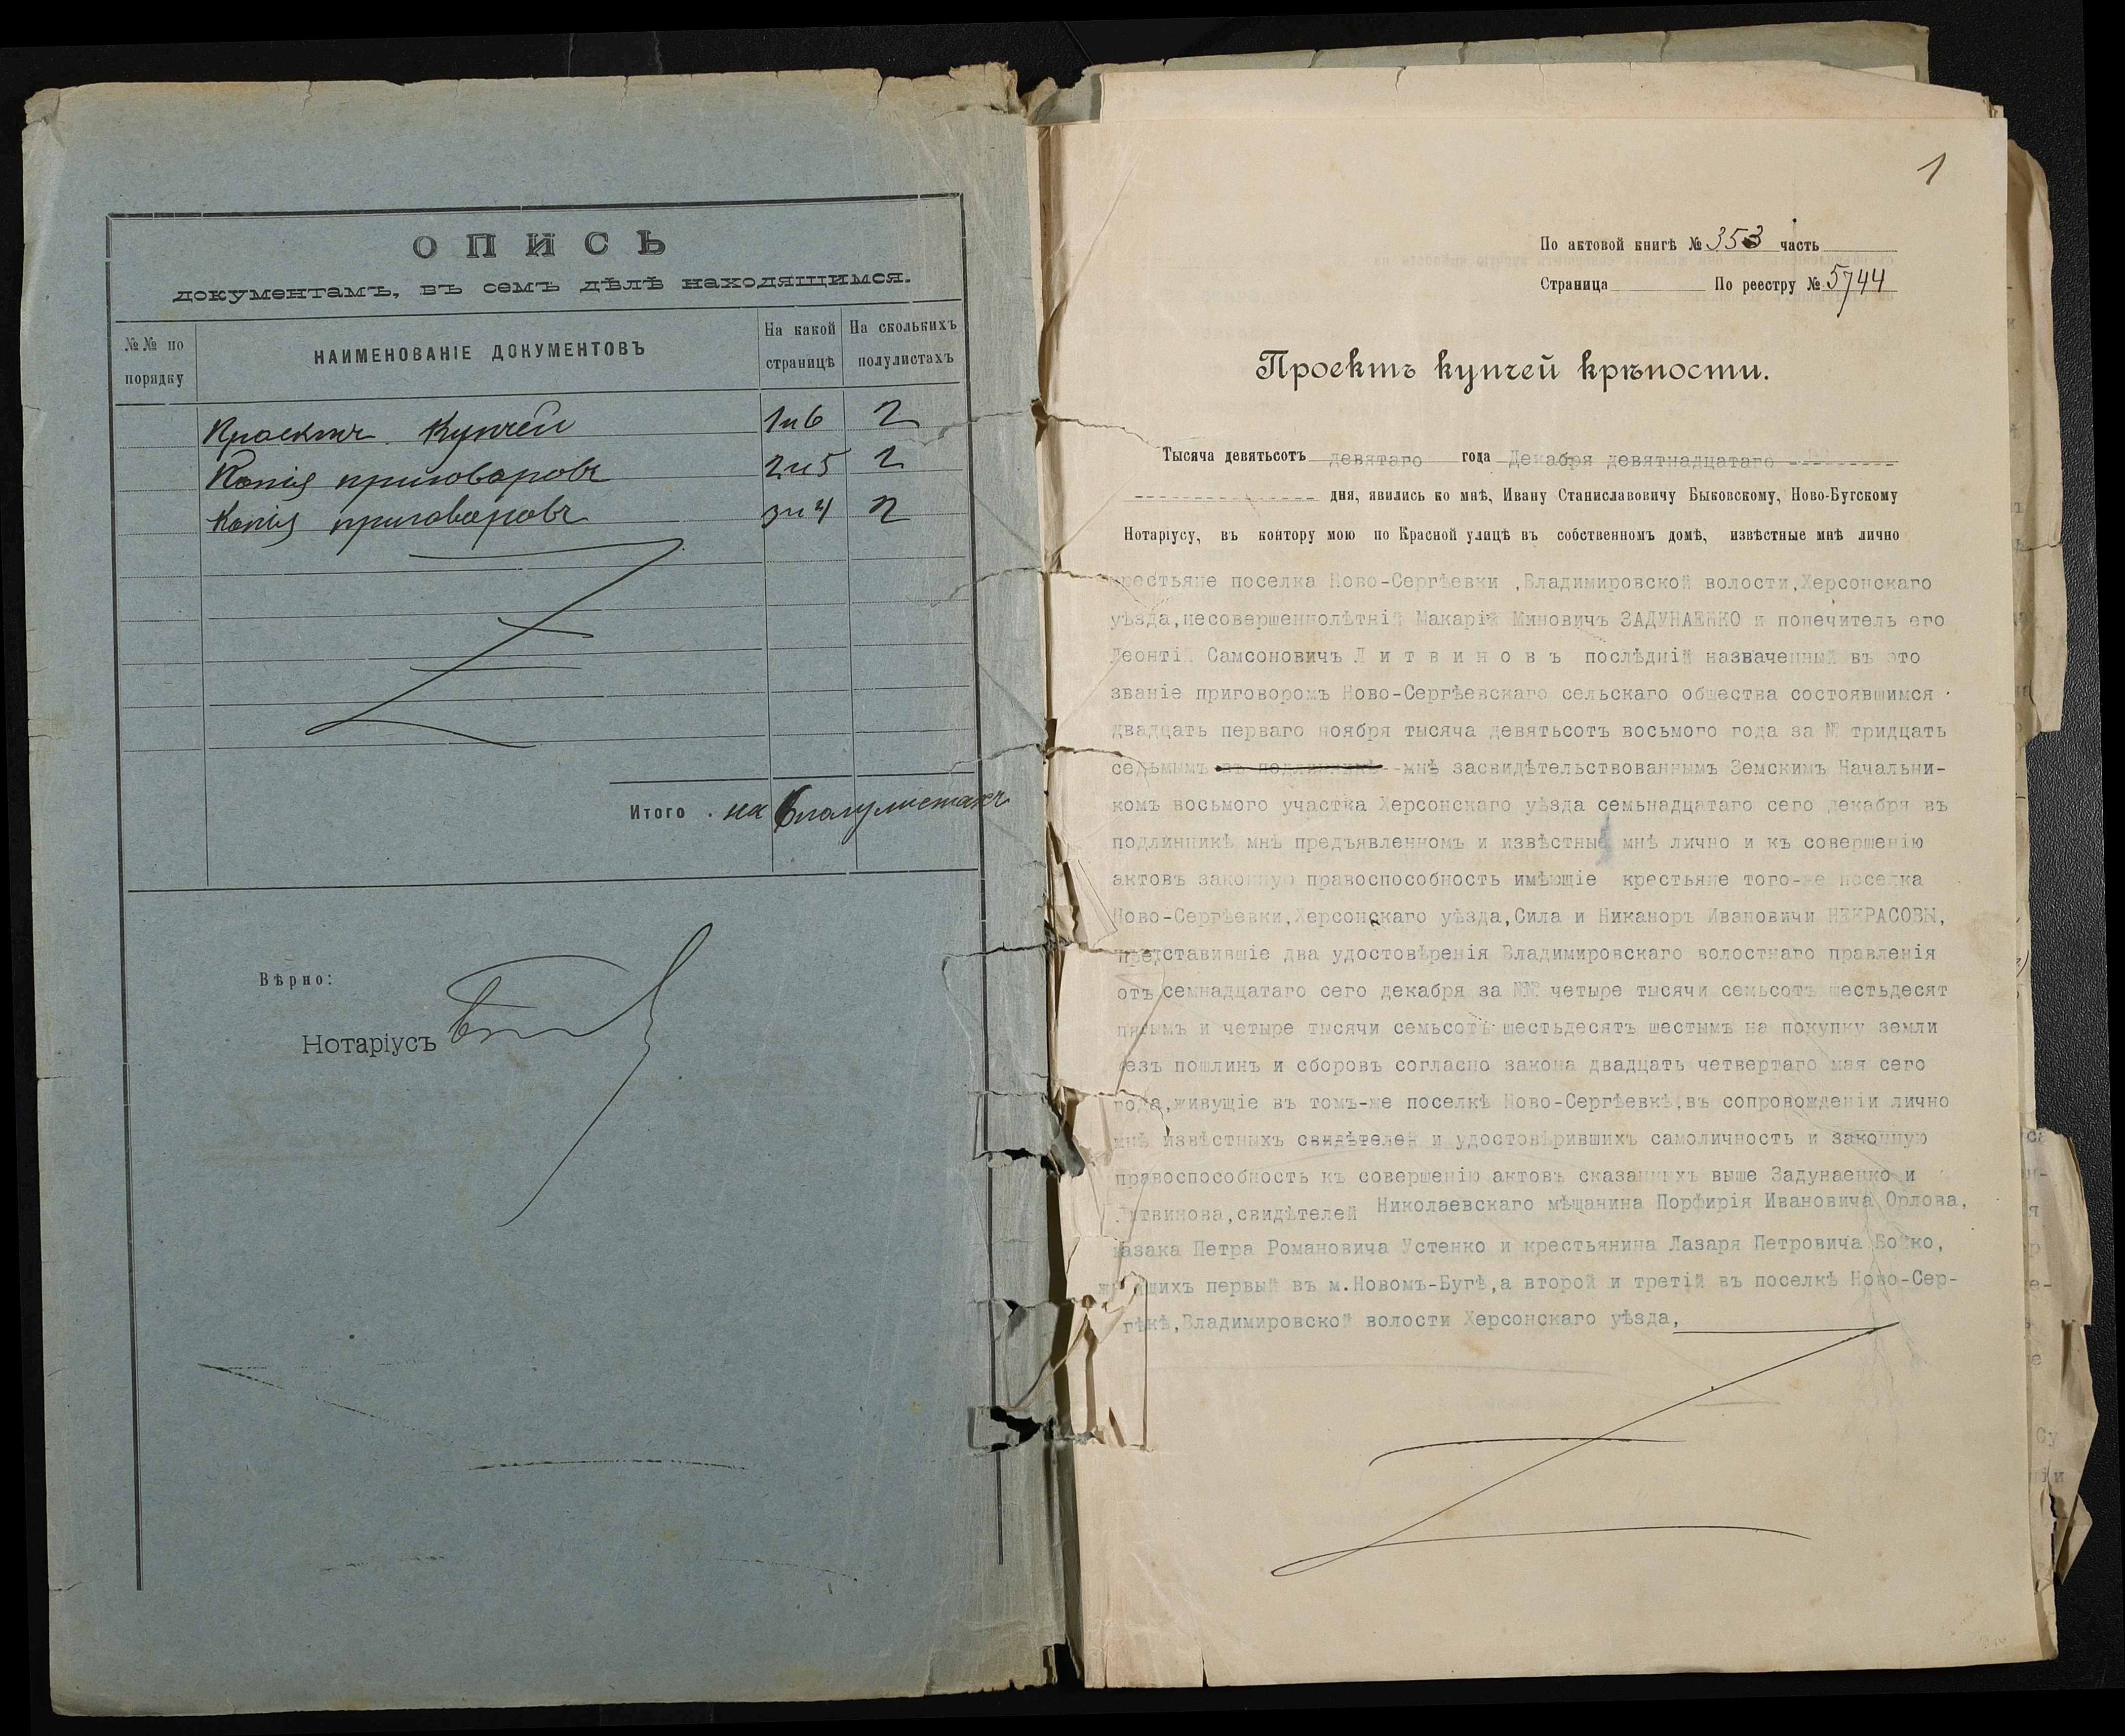 ОПИСЬ
документамъ, въ семъ дѣлѣ находящимся.
№№ по порядку
НАИМЕНОВАНІЕ ДОКУМЕНТОВЪ
На какой страницѣ
На сколькихъ полулистахъ
Проектъ Купчей 1 и 6 2
Копія приговоровъ 2 и 5 2
Копія приговоровъ 3 и 4 2
Итого на 6 полулистахъ
Вѣрно:
Нотаріусъ
1
По актовой книгѣ № 353 часть
Страница По реестру № 5744
Проектъ купчей крѣпости.
Тысяча девятьсотъ девятаго года Декабря девятнадцатаго
дня, явились ко мнѣ, Ивану Станиславовичу Быковскому, Ново-Бугскому
Нотаріусу, въ контору мою по Красной улицѣ въ собственномъ домѣ, извѣстные мнѣ лично
крестьяне поселка Ново-Сергѣевки ,Владимировской волости,Херсонскаго
уѣзда,несовершеннолѣтній Макарій Миновичъ ЗАДУНАЕНКО и попечитель его
Леонтій Самсоновичъ Л и т в и н о в ъ послѣдній назначенный въ это
званіе приговоромъ Ново-Сергѣевскаго сельскаго общества состоявшимся
двадцать перваго ноября тысяча девятьсотъ восьмого года за № тридцать
седьмымъ въ подлинникѣ--мнѣ засвидѣтельствованнымъ Земскимъ Начальни-
комъ восьмого участка Херсонскаго уѣзда семьнадцатаго сего декабря въ
подлинникѣ мнѣ предъявленномъ и извѣстные мнѣ лично и къ совершенію
актовъ законную правоспособность имѣющіе крестьяне того-же поселка
Ново-Сергѣевки,Херсонскаго уѣзда,Сила и Никаноръ Ивановичи НЕКРАСОВЫ,
представившіе два удостовѣренія Владимировскаго волостнаго правленія
отъ семнадцатаго сего декабря за №№ четыре тысячи семьсотъ шестьдесят
пятымъ и четыре тысячи семьсотъ шестьдесятъ шестымъ на покупку земли
безъ пошлинъ и сборовъ согласно закона двадцать четвертаго мая сего
года,живущіе въ томъ-же поселкѣ Ново-Сергѣевкѣ,въ сопровожденіи лично
мнѣ извѣстныхъ свидѣтелей и удостовѣрившихъ самоличность и законную
правоспособность къ совершенію актовъ сказанныхъ выше Задунаенко и
Литвинова,свидѣтелей Николаевскаго мѣщанина Порфирія Ивановича Орлова,
казака Петра Романовича Устенко и крестьянина Лазаря Петровича Бойко,
живущихъ первый въ м.Новомъ-Бугѣ,а второй и третій въ поселкѣ Ново-Сер-
гѣкѣ,Владимировской волости Херсонскаго уѣзда,